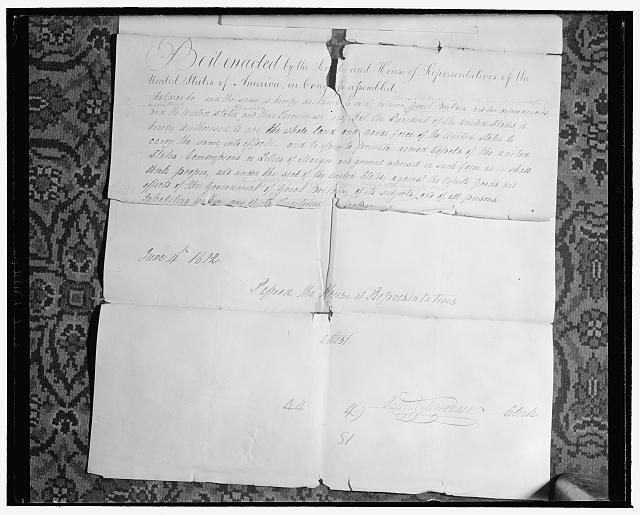 Be it enacted by the Senate and House of Representatives of the
United States of America, in Congress assembled,
that war be, and the same is hereby declared to exist between Great Britain and her dependencies
and the United States and their Territories; and that the President of the United States is
hereby authorised to use the whole land and naval force of the United States to
carry the same into effect – and to issue to private armed vessels of the United
States Commissions or Letters of Marque and general reprisal in such form as he shall
think proper, and under the seal of the United States, against the vessels goods and
effects of the Government of Great Britain, of its subjects, and of all persons
inhabiting within any of its territories
June 4th 1812.
Passed the House of Representatives
attest
44
49 Clerk
51